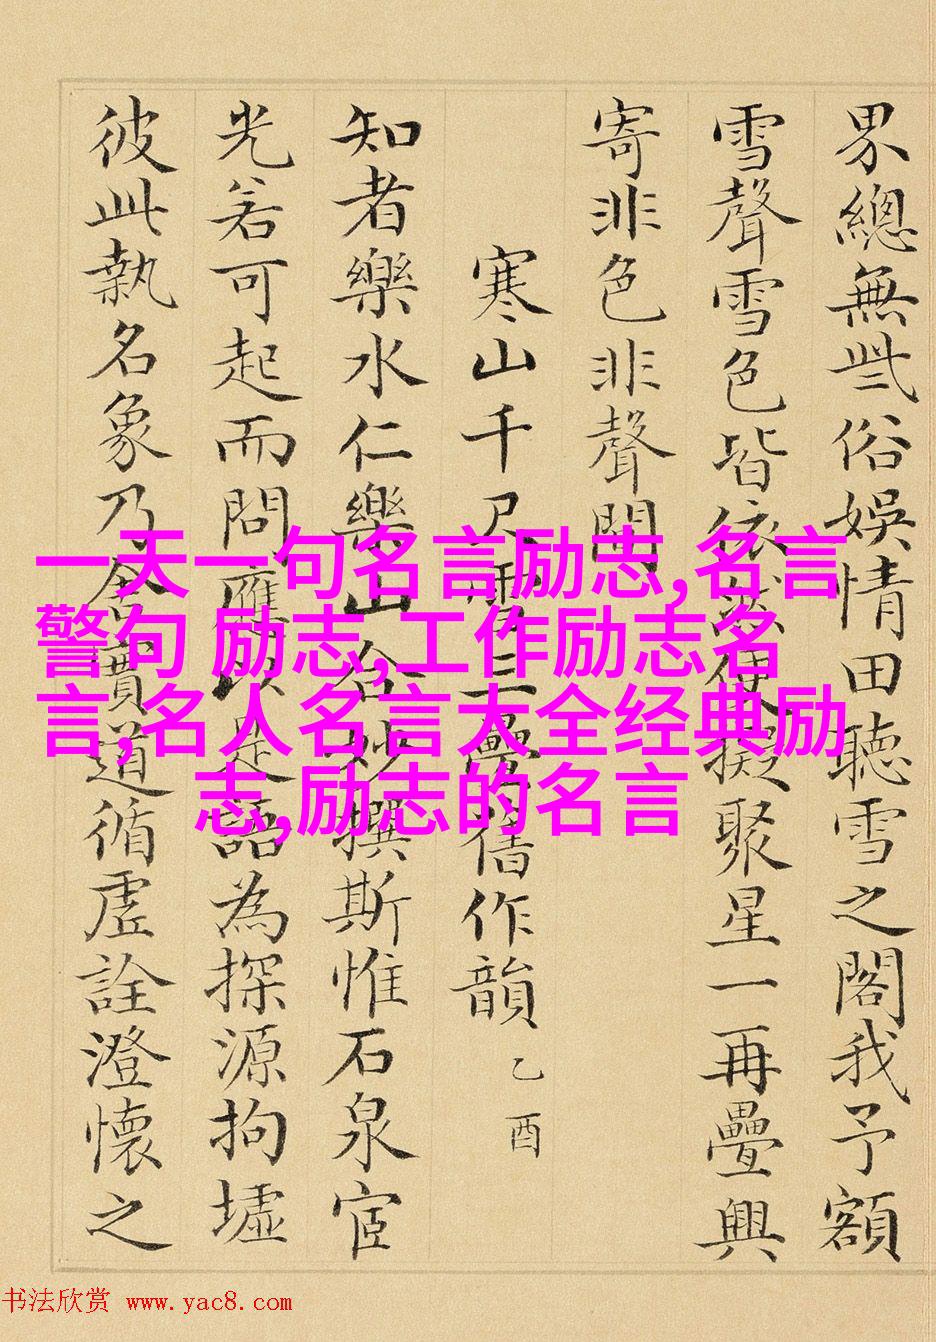 界總無些俗娛情田聽雪之閣我予額
雪聲雪色皆依然便擬聚星一再疊興
寄非色非聲間
寒山千尺雪三疊借作韻 乙酉
知者樂水仁樂山合妙撰斯惟石泉宦
光若可起而問應以是語為探源拘墟
彼此執名象乃舍實道循虛詮澄懷之
一天一句名言励志,名言
警句 励志,工作励志名
言,名人名言大全经典励
志,励志的名言
书法欣赏 www.yac8.com